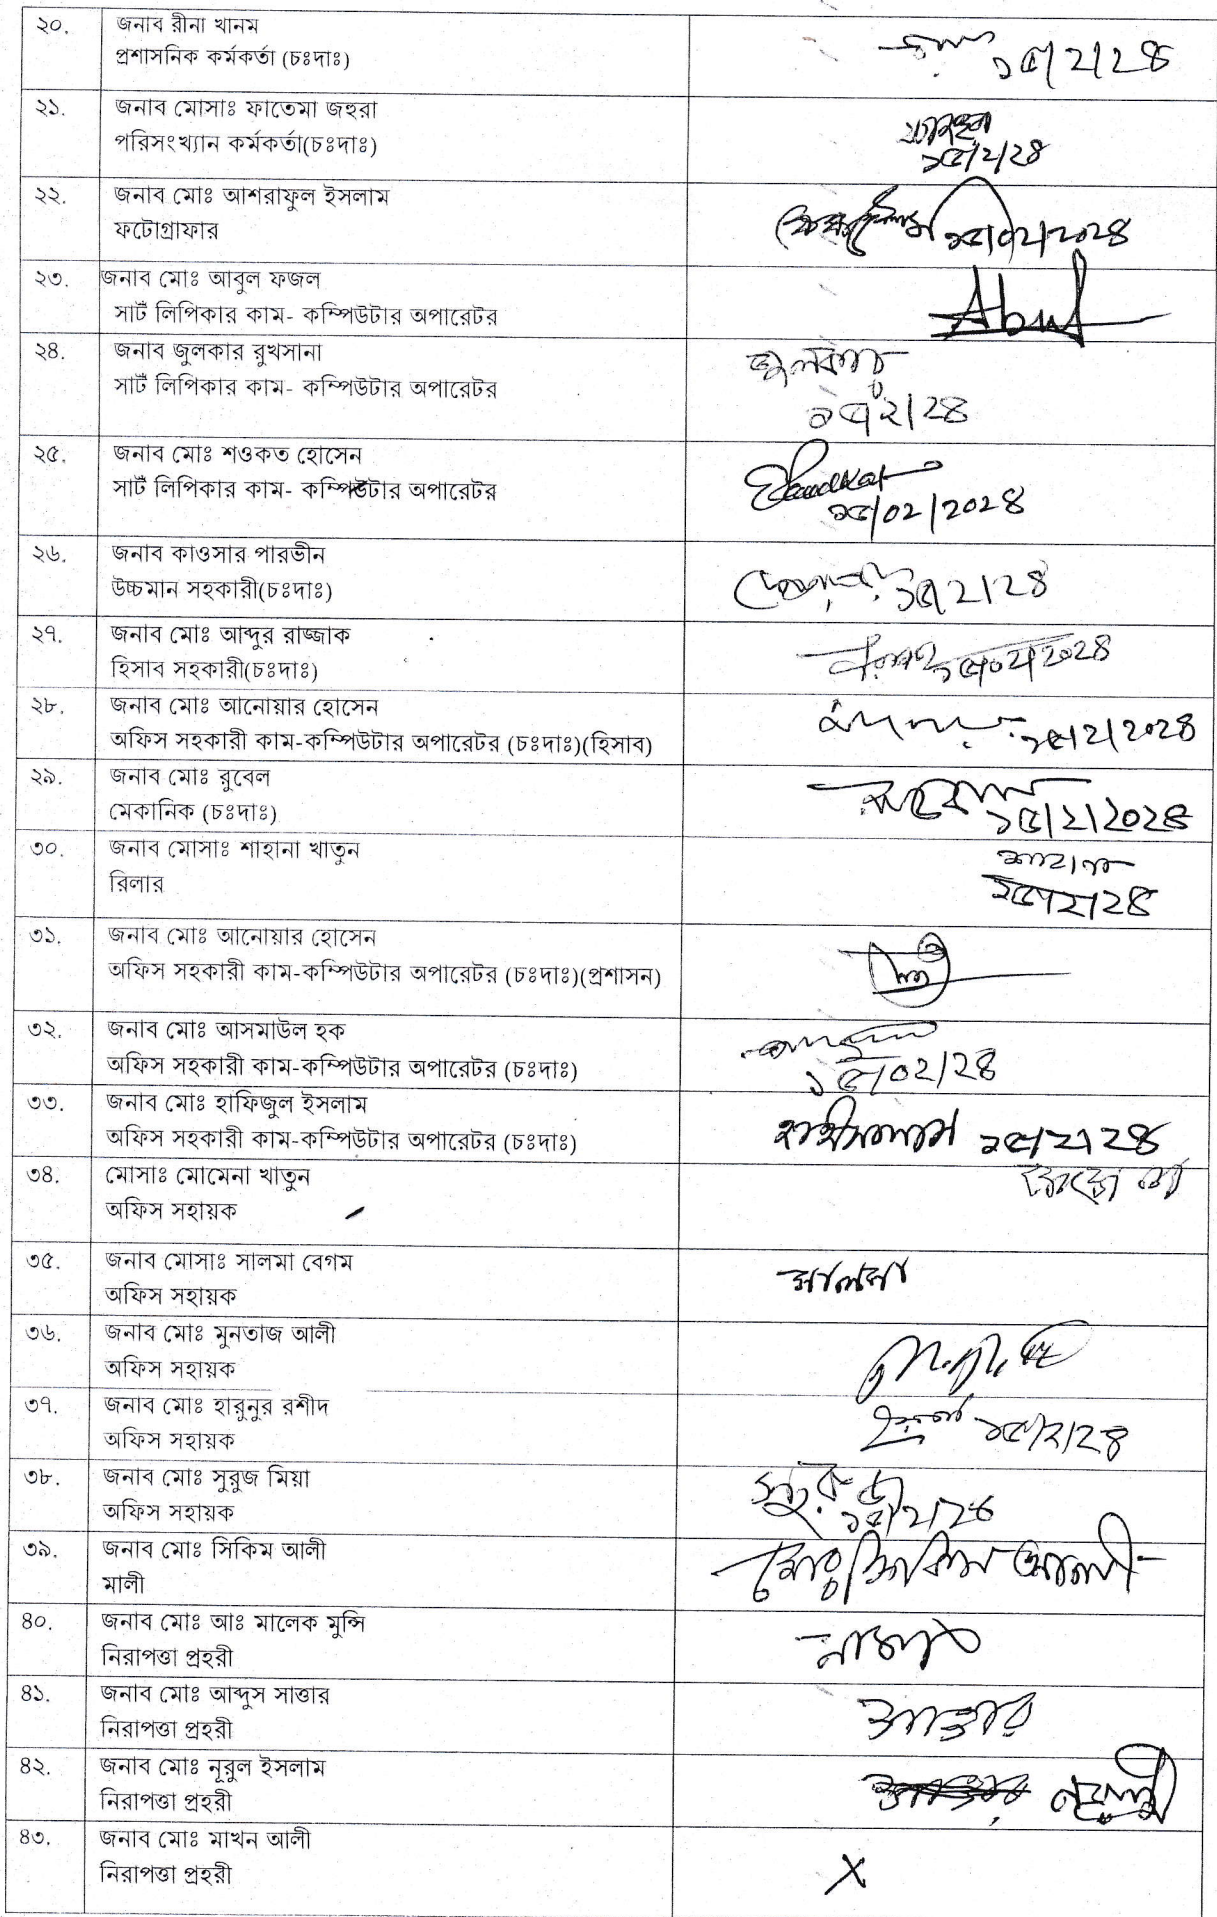 ২০.
জনাব রীনা খানম
প্রশাসনিক কর্মকর্তা (চঃদাঃ)
১৫/২/২৪
২১.
জনাব মোসাঃ ফাতেমা জহুরা
পরিসংখ্যান কর্মকর্তা(চঃদাঃ)
১৫/২/২৪
২২.
জনাব মোঃ আশরাফুল ইসলাম
ফটোগ্রাফার
১৫/০২/২০২৪
২৩.
জনাব মোঃ আবুল ফজল
সার্ট লিপিকার কাম- কম্পিউটার অপারেটর
Abul
২৪.
জনাব জুলকার রুখসানা
সার্ট লিপিকার কাম- কম্পিউটার অপারেটর
জুলকার
১৫/২/২৪
২৫.
জনাব মোঃ শওকত হোসেন
সার্ট লিপিকার কাম- কম্পিউটার অপারেটর
১৫/০২/২০২৪
২৬.
জনাব কাওসার পারভীন
উচ্চমান সহকারী(চঃদাঃ)
১৫/২/২৪
২৭.
জনাব মোঃ আব্দুর রাজ্জাক
হিসাব সহকারী(চঃদাঃ)
১৫/০২/২০২৪
২৮.
জনাব মোঃ আনোয়ার হোসেন
অফিস সহকারী কাম-কম্পিউটার অপারেটর (চঃদাঃ)(হিসাব)
১৫/২/২০২৪
২৯.
জনাব মোঃ রুবেল
মেকানিক (চঃদাঃ)
১৫/২/২০২৪
৩০.
জনাব মোসাঃ শাহানা খাতুন
রিলার
শাহানা
১৫/২/২৪
৩১.
জনাব মোঃ আনোয়ার হোসেন
অফিস সহকারী কাম-কম্পিউটার অপারেটর (চঃদাঃ)(প্রশাসন)
৩২.
জনাব মোঃ আসমাউল হক
অফিস সহকারী কাম-কম্পিউটার অপারেটর (চঃদাঃ)
১৫/০২/২৪
৩৩.
জনাব মোঃ হাফিজুল ইসলাম
অফিস সহকারী কাম-কম্পিউটার অপারেটর (চঃদাঃ)
১৫/২/২৪
৩৪.
মোসাঃ মোমেনা খাতুন
অফিস সহায়ক
৩৫.
জনাব মোসাঃ সালমা বেগম
অফিস সহায়ক
সালমা
৩৬.
জনাব মোঃ মুনতাজ আলী
অফিস সহায়ক
৩৭.
জনাব মোঃ হারুনুর রশীদ
অফিস সহায়ক
১৫/২/২৪
৩৮.
জনাব মোঃ সুরুজ মিয়া
অফিস সহায়ক
সুরুজ
১৫/২/২৪
৩৯.
জনাব মোঃ সিকিম আলী
মালী
মোঃ সিকিম আলী
৪০.
জনাব মোঃ আঃ মালেক মুন্সি
নিরাপত্তা প্রহরী
৪১.
জনাব মোঃ আব্দুস সাত্তার
নিরাপত্তা প্রহরী
সাত্তার
৪২.
জনাব মোঃ নূরুল ইসলাম
নিরাপত্তা প্রহরী
৪৩.
জনাব মোঃ মাখন আলী
নিরাপত্তা প্রহরী
X